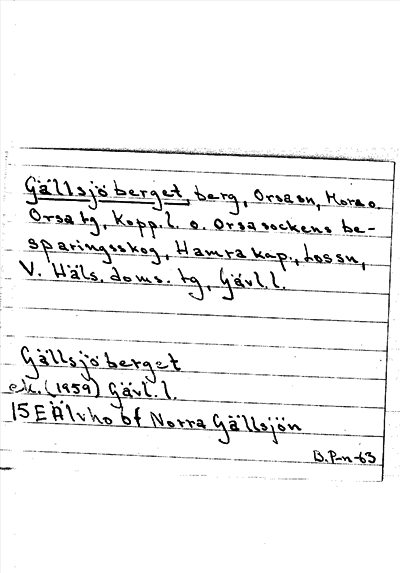 Gällsjöberget, berg, Orsa sn, Mora o.
Orsa tg, Kopp. l. o. Orsa sockens be-
sparingsskog, Hamra kap., Los sn,
V. Häls. doms. tg, Gävl. l.
Gällsjöberget
ek. (1959) Gävl. l.
15E Älvho bf Norra Gällsjön
B.P-n-63